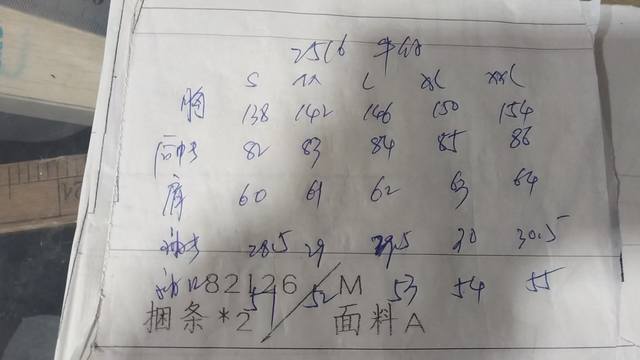 2516
S M L XL XXL
胸 138 142 146 150 154
后中长 82 83 84 85 86
肩 60 61 62 63 64
袖长 28.5 29 29.5 30 30.5
袖口 51 52 53 54 55
82126/M
捆条*2 面料A